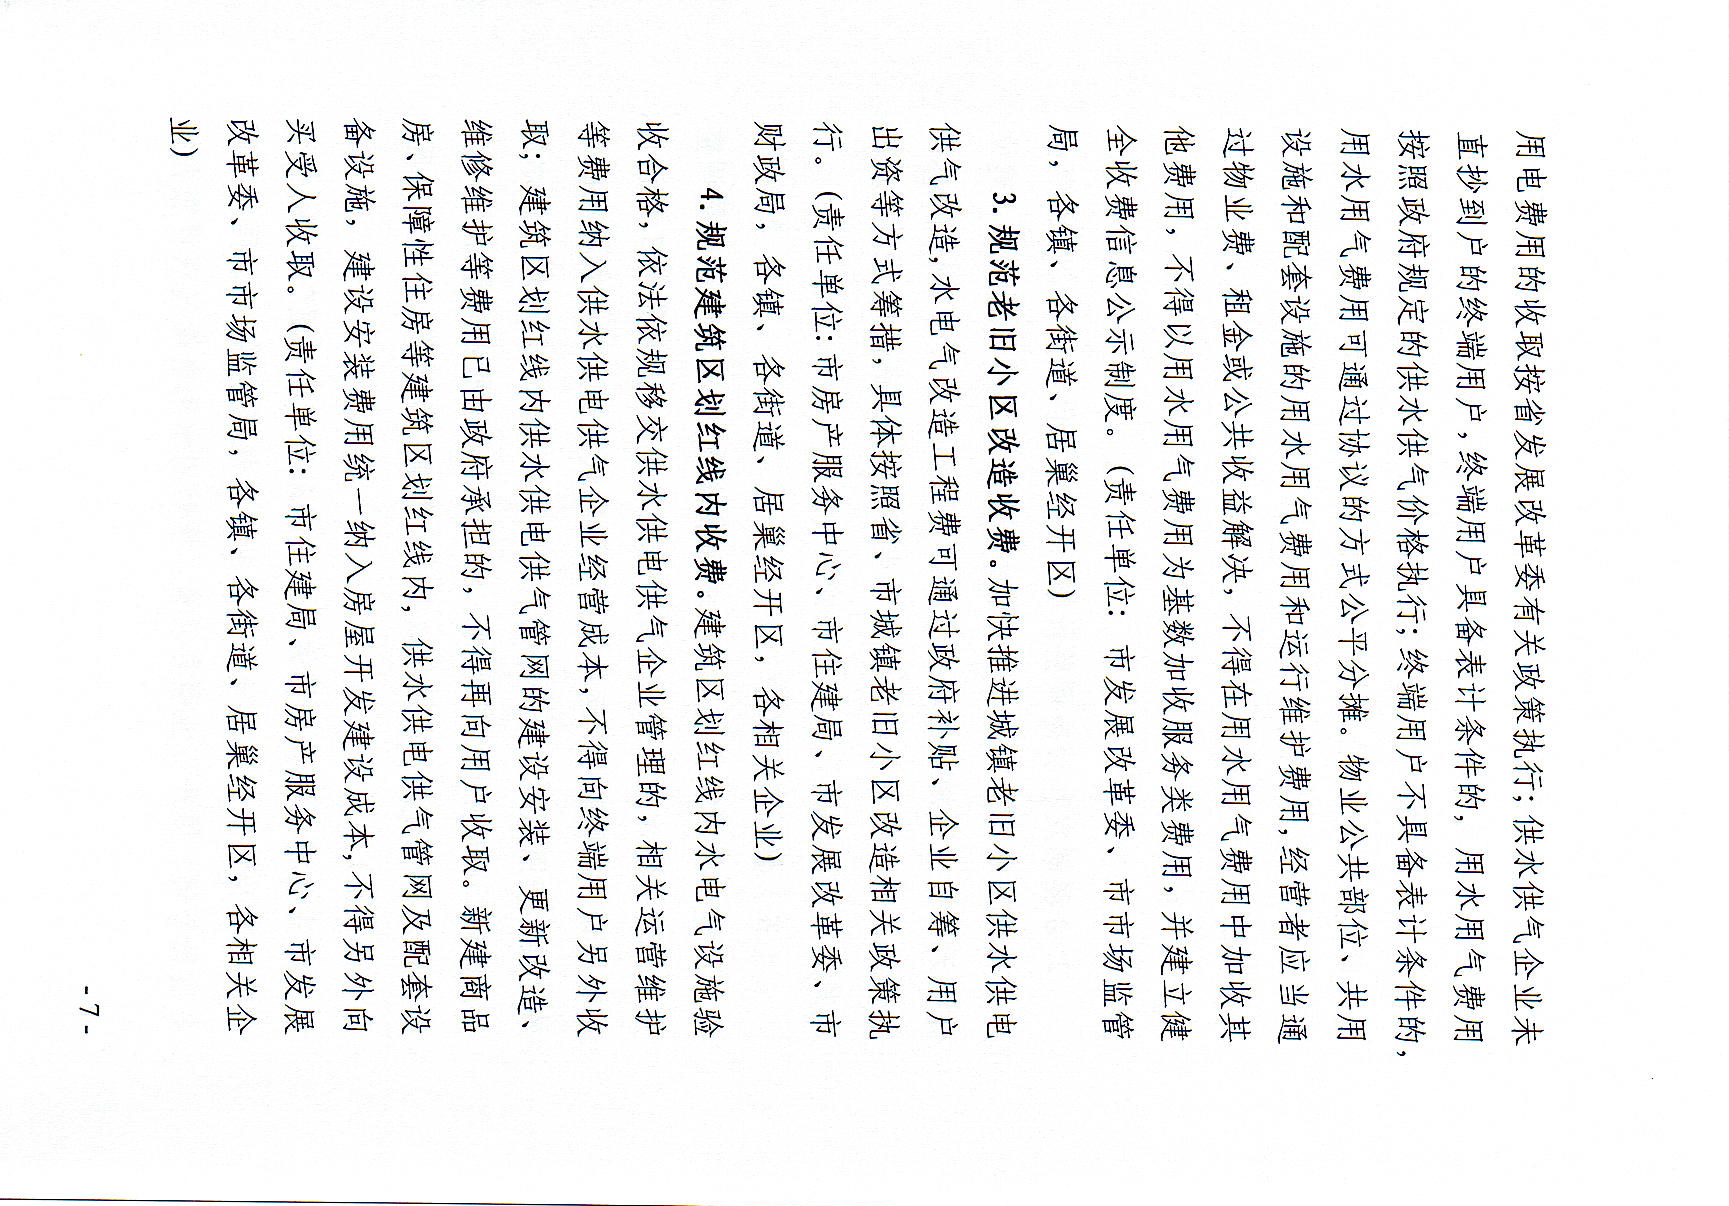 用电费用的收取按省发展改革委有关政策执行；供水供气企业未
直抄到户的终端用户，终端用户具备表计条件的，用水用气费用
按照政府规定的供水供气价格执行；终端用户不具备表计条件的，
用水用气费用可通过协议的方式公平分摊。物业公共部位、共用
设施和配套设施的用水用气费用和运行维护费用，经营者应当通
过物业费、租金或公共收益解决，不得在用水用气费用中加收其
他费用，不得以用水用气费用为基数加收服务类费用，并建立健
全收费信息公示制度。（责任单位：市发展改革委、市市场监管
局，各镇、各街道、居巢经开区）
3.规范老旧小区改造收费。加快推进城镇老旧小区供水供电
供气改造，水电气改造工程费可通过政府补贴、企业自筹、用户
出资等方式筹措，具体按照省、市城镇老旧小区改造相关政策执
行。（责任单位：市房产服务中心、市住建局、市发展改革委、市
财政局，各镇、各街道、居巢经开区，各相关企业）
4.规范建筑区划红线内收费。建筑区划红线内水电气设施验
收合格，依法依规移交供水供电供气企业管理的，相关运营维护
等费用纳入供水供电供气企业经营成本，不得向终端用户另外收
取；建筑区划红线内供水供电供气管网的建设安装、更新改造、
维修维护等费用已由政府承担的，不得再向用户收取。新建商品
房、保障性住房等建筑区划红线内，供水供电供气管网及配套设
备设施，建设安装费用统一纳入房屋开发建设成本，不得另外向
买受人收取。（责任单位：市住建局、市房产服务中心、市发展
改革委、市市场监管局，各镇、各街道、居巢经开区，各相关企
业）
-7-